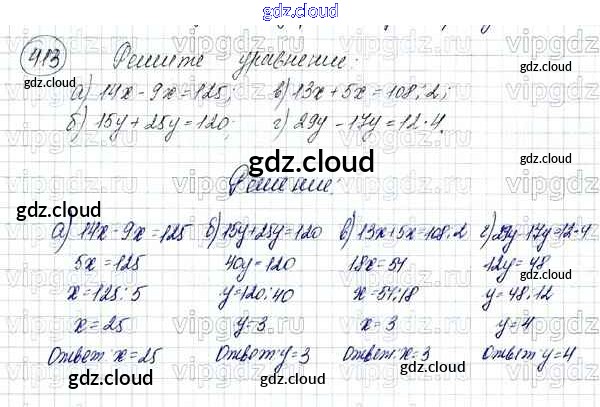 gdz.cloud
413 Решите уравнение:
gdz.cloud gdz.cloud
а) 14x - 9x = 125; в) 13x + 5x = 108:2;
б) 15y + 25y = 120; г) 29y - 17y = 12·4.
gdz.cloud
Решение:
gdz.cloud gdz.cloud
а) 14x - 9x = 125 б) 15y + 25y = 120 в) 13x + 5x = 108:2 г) 29y - 17y = 12·4
5x = 125 40y = 120 18x = 54 12y = 48
x = 125:5 y = 120:40 x = 54:18 y = 48:12
x = 25 y = 3 x = 3 y = 4
Ответ: x = 25 Ответ: y = 3 Ответ: x = 3 Ответ y = 4
gdz.cloud gdz.cloud
gdz.cloud